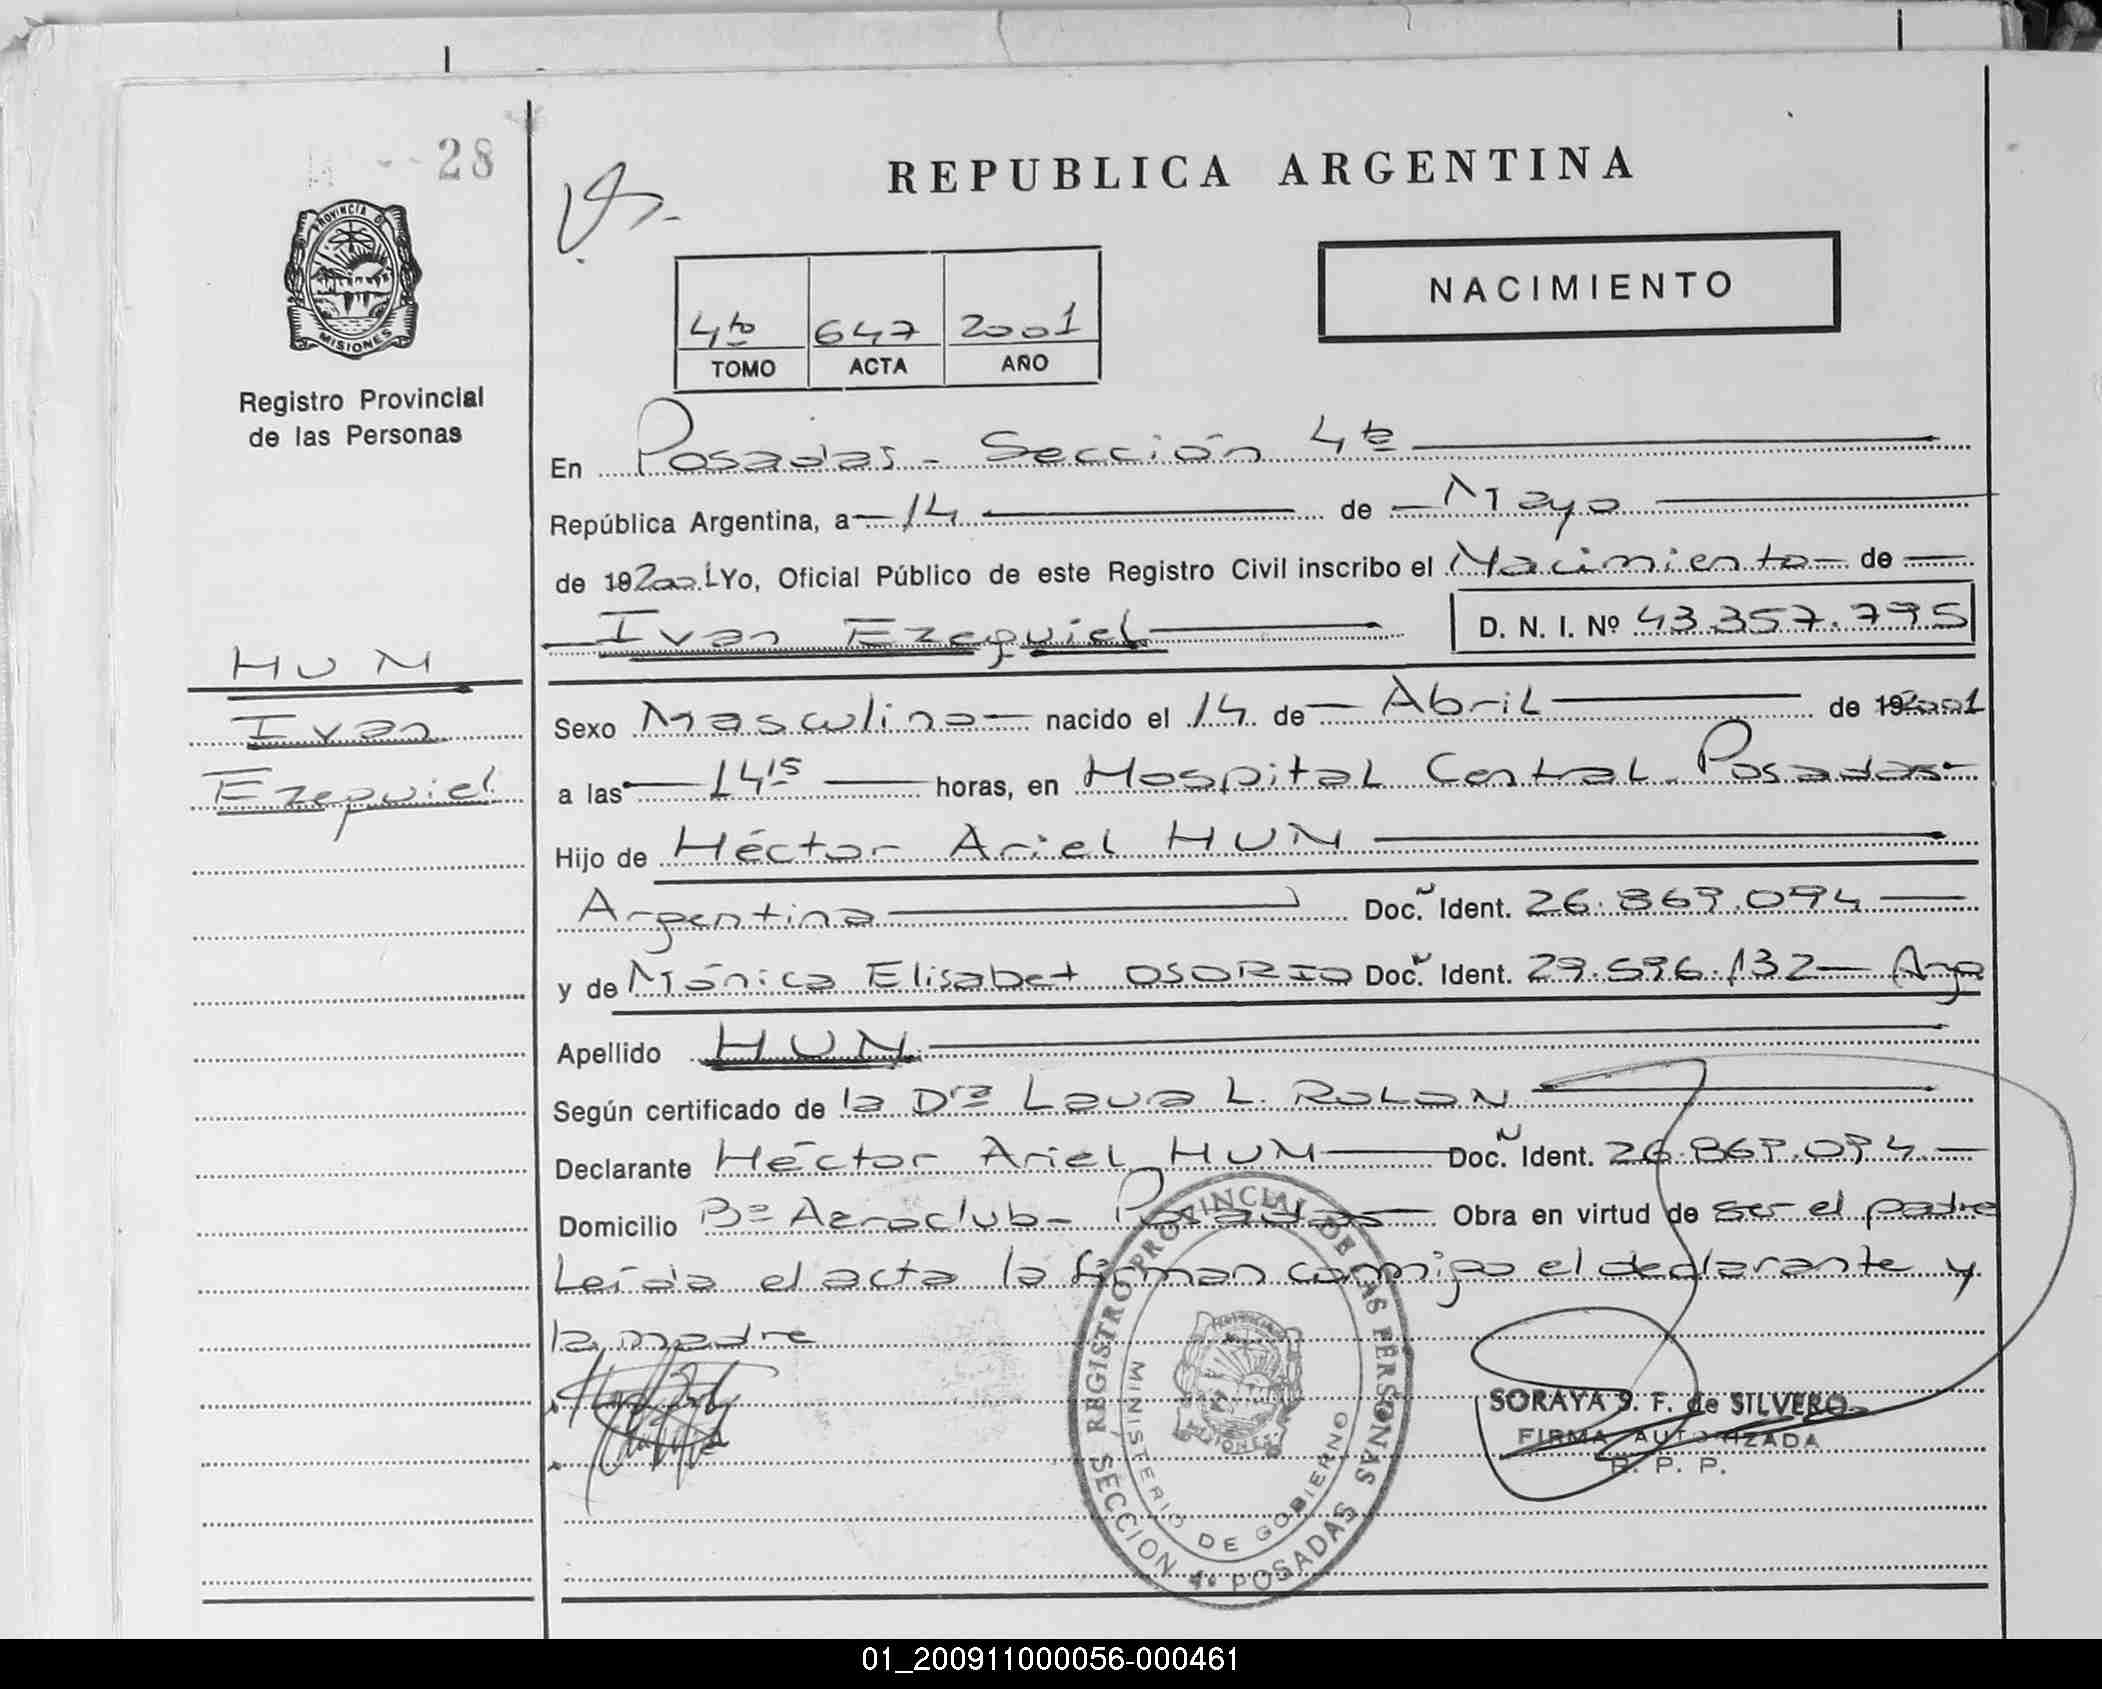 28
REPUBLICA ARGENTINA
PROVINCIA DE
MISIONES
NACIMIENTO
4to 647 2001
TOMO ACTA AÑO
Registro Provincial
de las Personas
En Posadas - Sección 4ta
República Argentina, a 14 de Mayo
de 192001 Yo, Oficial Público de este Registro Civil inscribo el Nacimiento de
Ivan Ezequiel D. N. I. Nº 43.357.795
HUN
Ivan
Ezequiel
Sexo Masculino nacido el 14 de Abril de 192001
a las 14 15 horas, en Hospital Central - Posadas
Hijo de Héctor Ariel HUN
Argentina Doc. N Ident. 26.869.094
y de Mónica Elisabet OSORIO Doc. N Ident. 29.596.132 Arga
Apellido HUN
Según certificado de la Dra Laura L. ROLON
Declarante Héctor Ariel HUN Doc. N Ident. 26.869.094
Domicilio Bº Aeroclub - Posadas Obra en virtud de ser el padre
Leída el acta la firman conmigo el declarante y
la madre
REGISTRO PROVINCIAL DE LAS PERSONAS
MINISTERIO DE GOBIERNO
MISIONES
SECCION 4º POSADAS
SORAYA S. F. de SILVERO
FIRMA AUTORIZADA
R. P. P.
01_200911000056-000461